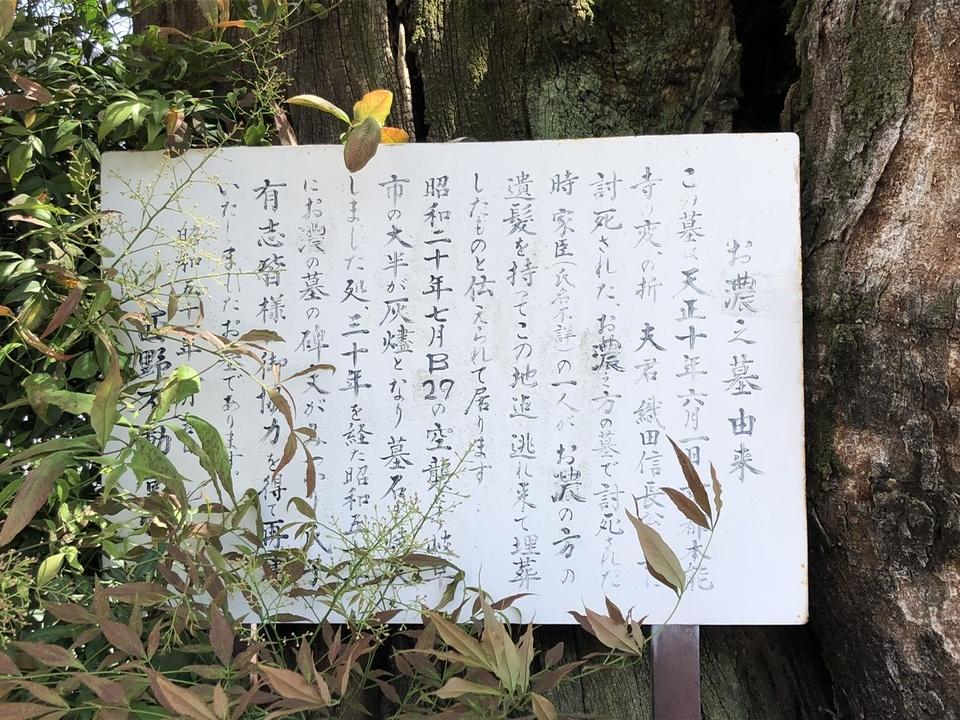 お濃之墓由来
この墓は天正十年六月一日 都本能
寺の変の折 夫君織田信長
討死された、お濃之方の墓で討死された
時 家臣(氏名不詳)の一人が お濃の方の
遺髪を持ってこの地迠逃れ来て埋葬
したものと伝えられて居ります
昭和二十年七月B29の空襲 岐阜
市の大半が灰燼となり 墓石
しました処、三十年を経た昭和五
にお濃の墓の碑文が
有志皆様 御協力を得て再
いたしました。お墓であります。
昭和五十 年
西野不動